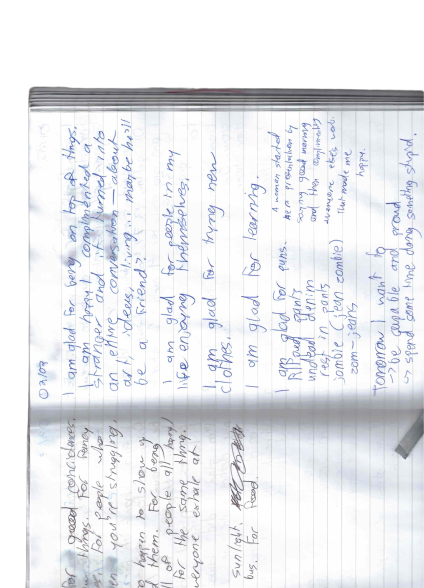 03/09
I am glad for being on top of things.
I am happy I complimented a
stranger and it turned into
an entire conversation — about
art, ideas, living... maybe he'll
be a friend?
I am glad for people in my
life enjoying themselves.
I am glad for trying new
clothes.
I am glad for learning.
I am glad for puns.
Ripped pants
undead denim
rest in pants
jombie (jean zombie)
zom-jeans
A woman started
her presentation by
saying good morning
and then complimenting
everyone else's work.
That made me
happy.
Tomorrow I want to
→ be equitable and proud
→ spend some time doing something stupid.
for good coincidences.
things. For fancy
For people who
you're struggling.
happen to show up
them. For being
of people all
for the same thing.
everyone exhale at
sunlight.
bus. For food